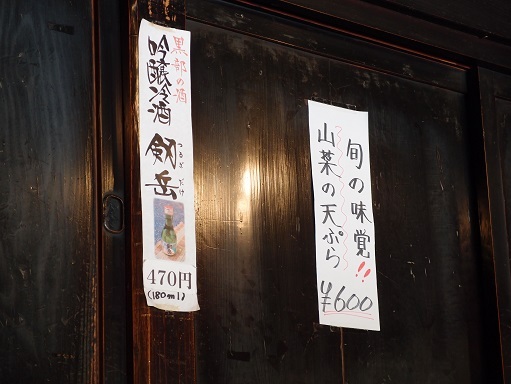 黒部の酒
吟醸冷酒
剱岳
つるぎ だけ
470円
(180ml)
旬の味覚!!
山菜の天ぷら
¥600